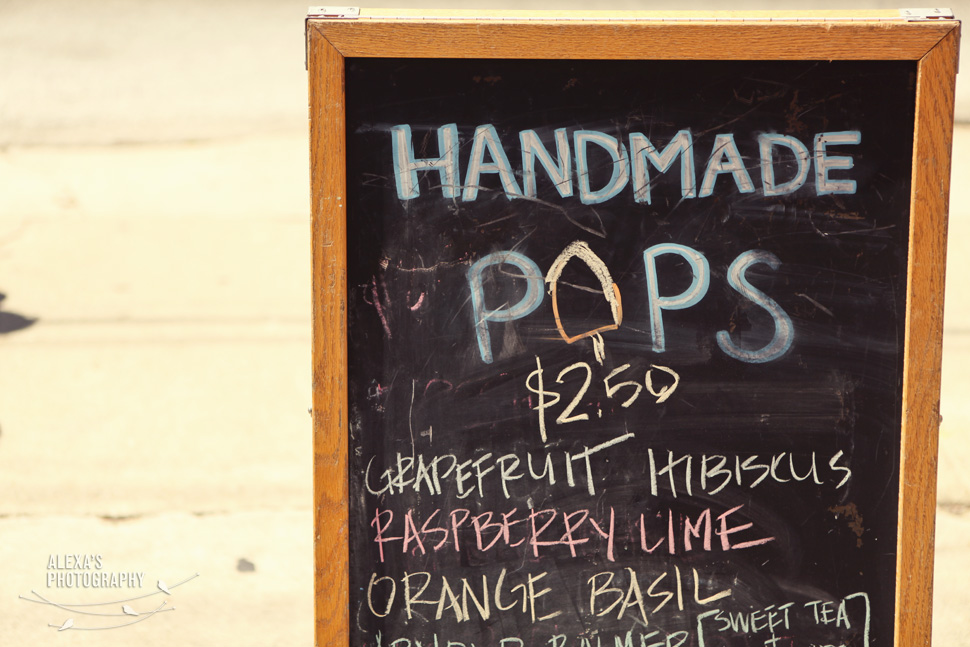 HANDMADE
POPS
$2.50
GRAPEFRUIT HIBISCUS
RASPBERRY LIME
ORANGE BASIL
PALMER [SWEET TEA]
ALEXA'S
PHOTOGRAPHY